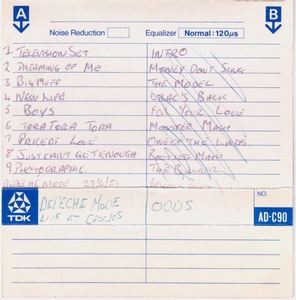 A
B
Noise Reduction
Equalizer Normal: 120µs
1 TELEVISION SET INTRO
2 DREAMING OF ME MONEY DON'T SING
3 BIG MUFF THE MODEL
4 NEW LIFE DRAC'S BACK
5 BOYS FOR YOUR LOVE
6 TORA TORA TORA MONSTER MASH
7 PRICE OF LOVE ONE OF THE LADS
8 JUST CAN'T GET ENOUGH
9 PHOTOGRAPHIC THE
DEPECHE MODE
DEPECHE MODE
LIVE AT
0005
NO.
TDK
AD-C90